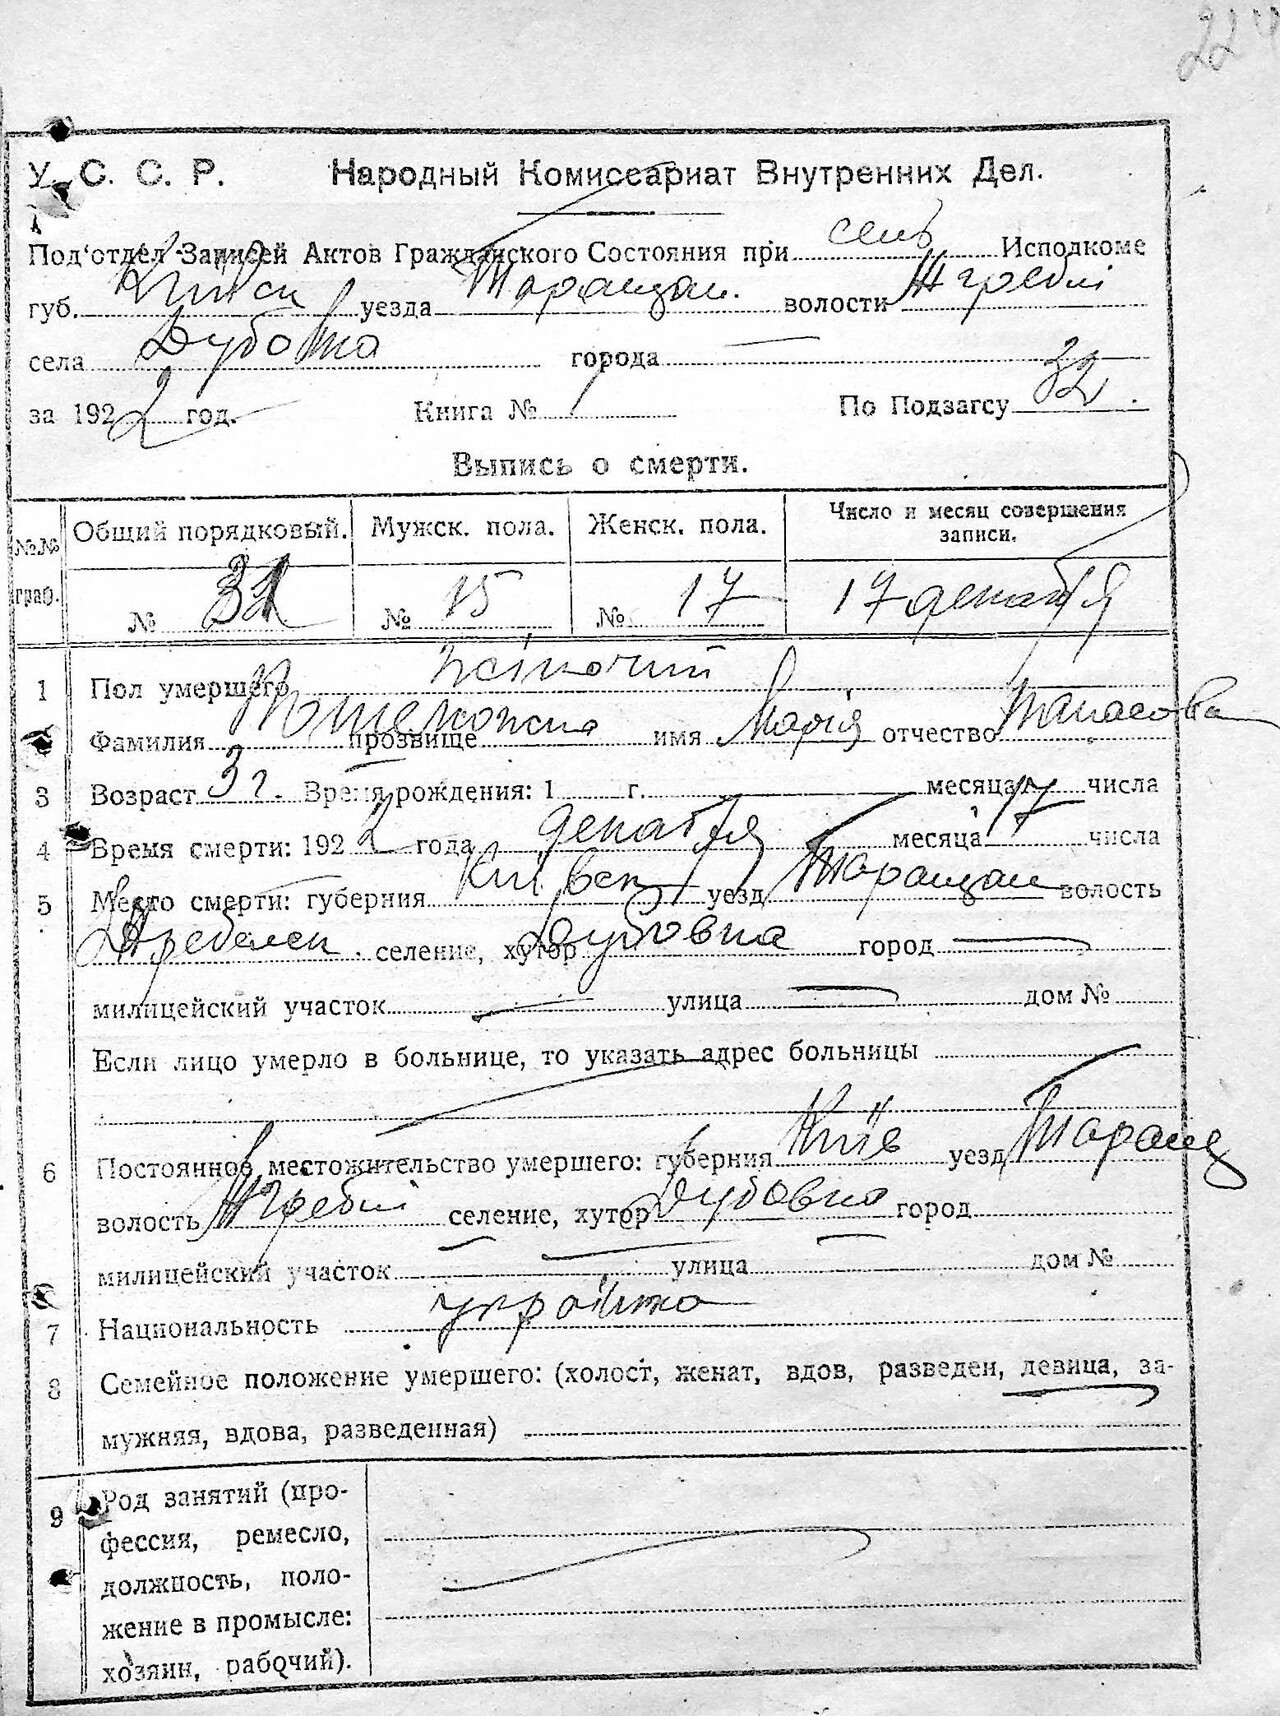 224
У. С. С. Р. Народный Комиссариат Внутренних Дел.
Под'отдел Записей Актов Гражданского Состояния при сельс Исподкоме
губ. Київск уезда Таращан. волости Жгребл
села Дубовка города —
за 1922 год. Книга № 1 По Подзагсу 32.
Выпись о смерти.
№№ граф. Общий порядковый. Мужск. пола. Женск. пола. Число и месяц совершения записи.
№ 32 № 15 № 17 17 декабря
1 Пол умершего жіночий
Фамилия прозвище имя Марія отчество Танасова
3 Возраст 3 г. Время рождения: 1 г. месяца числа
4 Время смерти: 1922 года декабря месяца 17 числа
5 Место смерти: губерния Київск уезд Таращан волость
селение, хутор Дубовка город —
милицейский участок — улица — дом №
Если лицо умерло в больнице, то указать адрес больницы
6 Постоянное местожительство умершего: губерния Київ уезд Таращ
волость селение, хутор Дубовка город
милицейский участок — улица — дом №
7 Национальность українка
8 Семейное положение умершего: (холост, женат, вдов, разведен, девица, за-
мужняя, вдова, разведенная)
9 Род занятий (про-
фессия, ремесло,
должность, поло-
жение в промысле:
хозяин, рабочий).